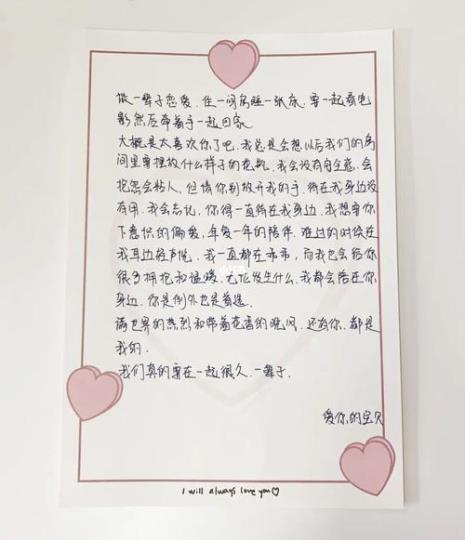 做一辈子恋爱.住一间房睡一张床.要一起看电
影然后牵着手一起回家
大概是太喜欢你了吧.我总是会想以后我们的房
间里要摆放什么样子的花瓶.我会没有安全感.会
抱怨会粘人,但请你别放开我的手,待在我身边没
有用.我会忘记,你得一直待在我身边.我想要你
下意识的偏爱,年复一年的陪伴.难过的时候在
我耳边轻声说.我一直都在
而我也会给你
很多拥抱和温暖.无论发生什么.我都会陪在你
身边.你是例外也是首选.
满世界的热烈和带着花香的晚风.还有你.都是
我的.
我们真的要在一起很久.一辈子.
爱你的宝贝
I will always love you♡